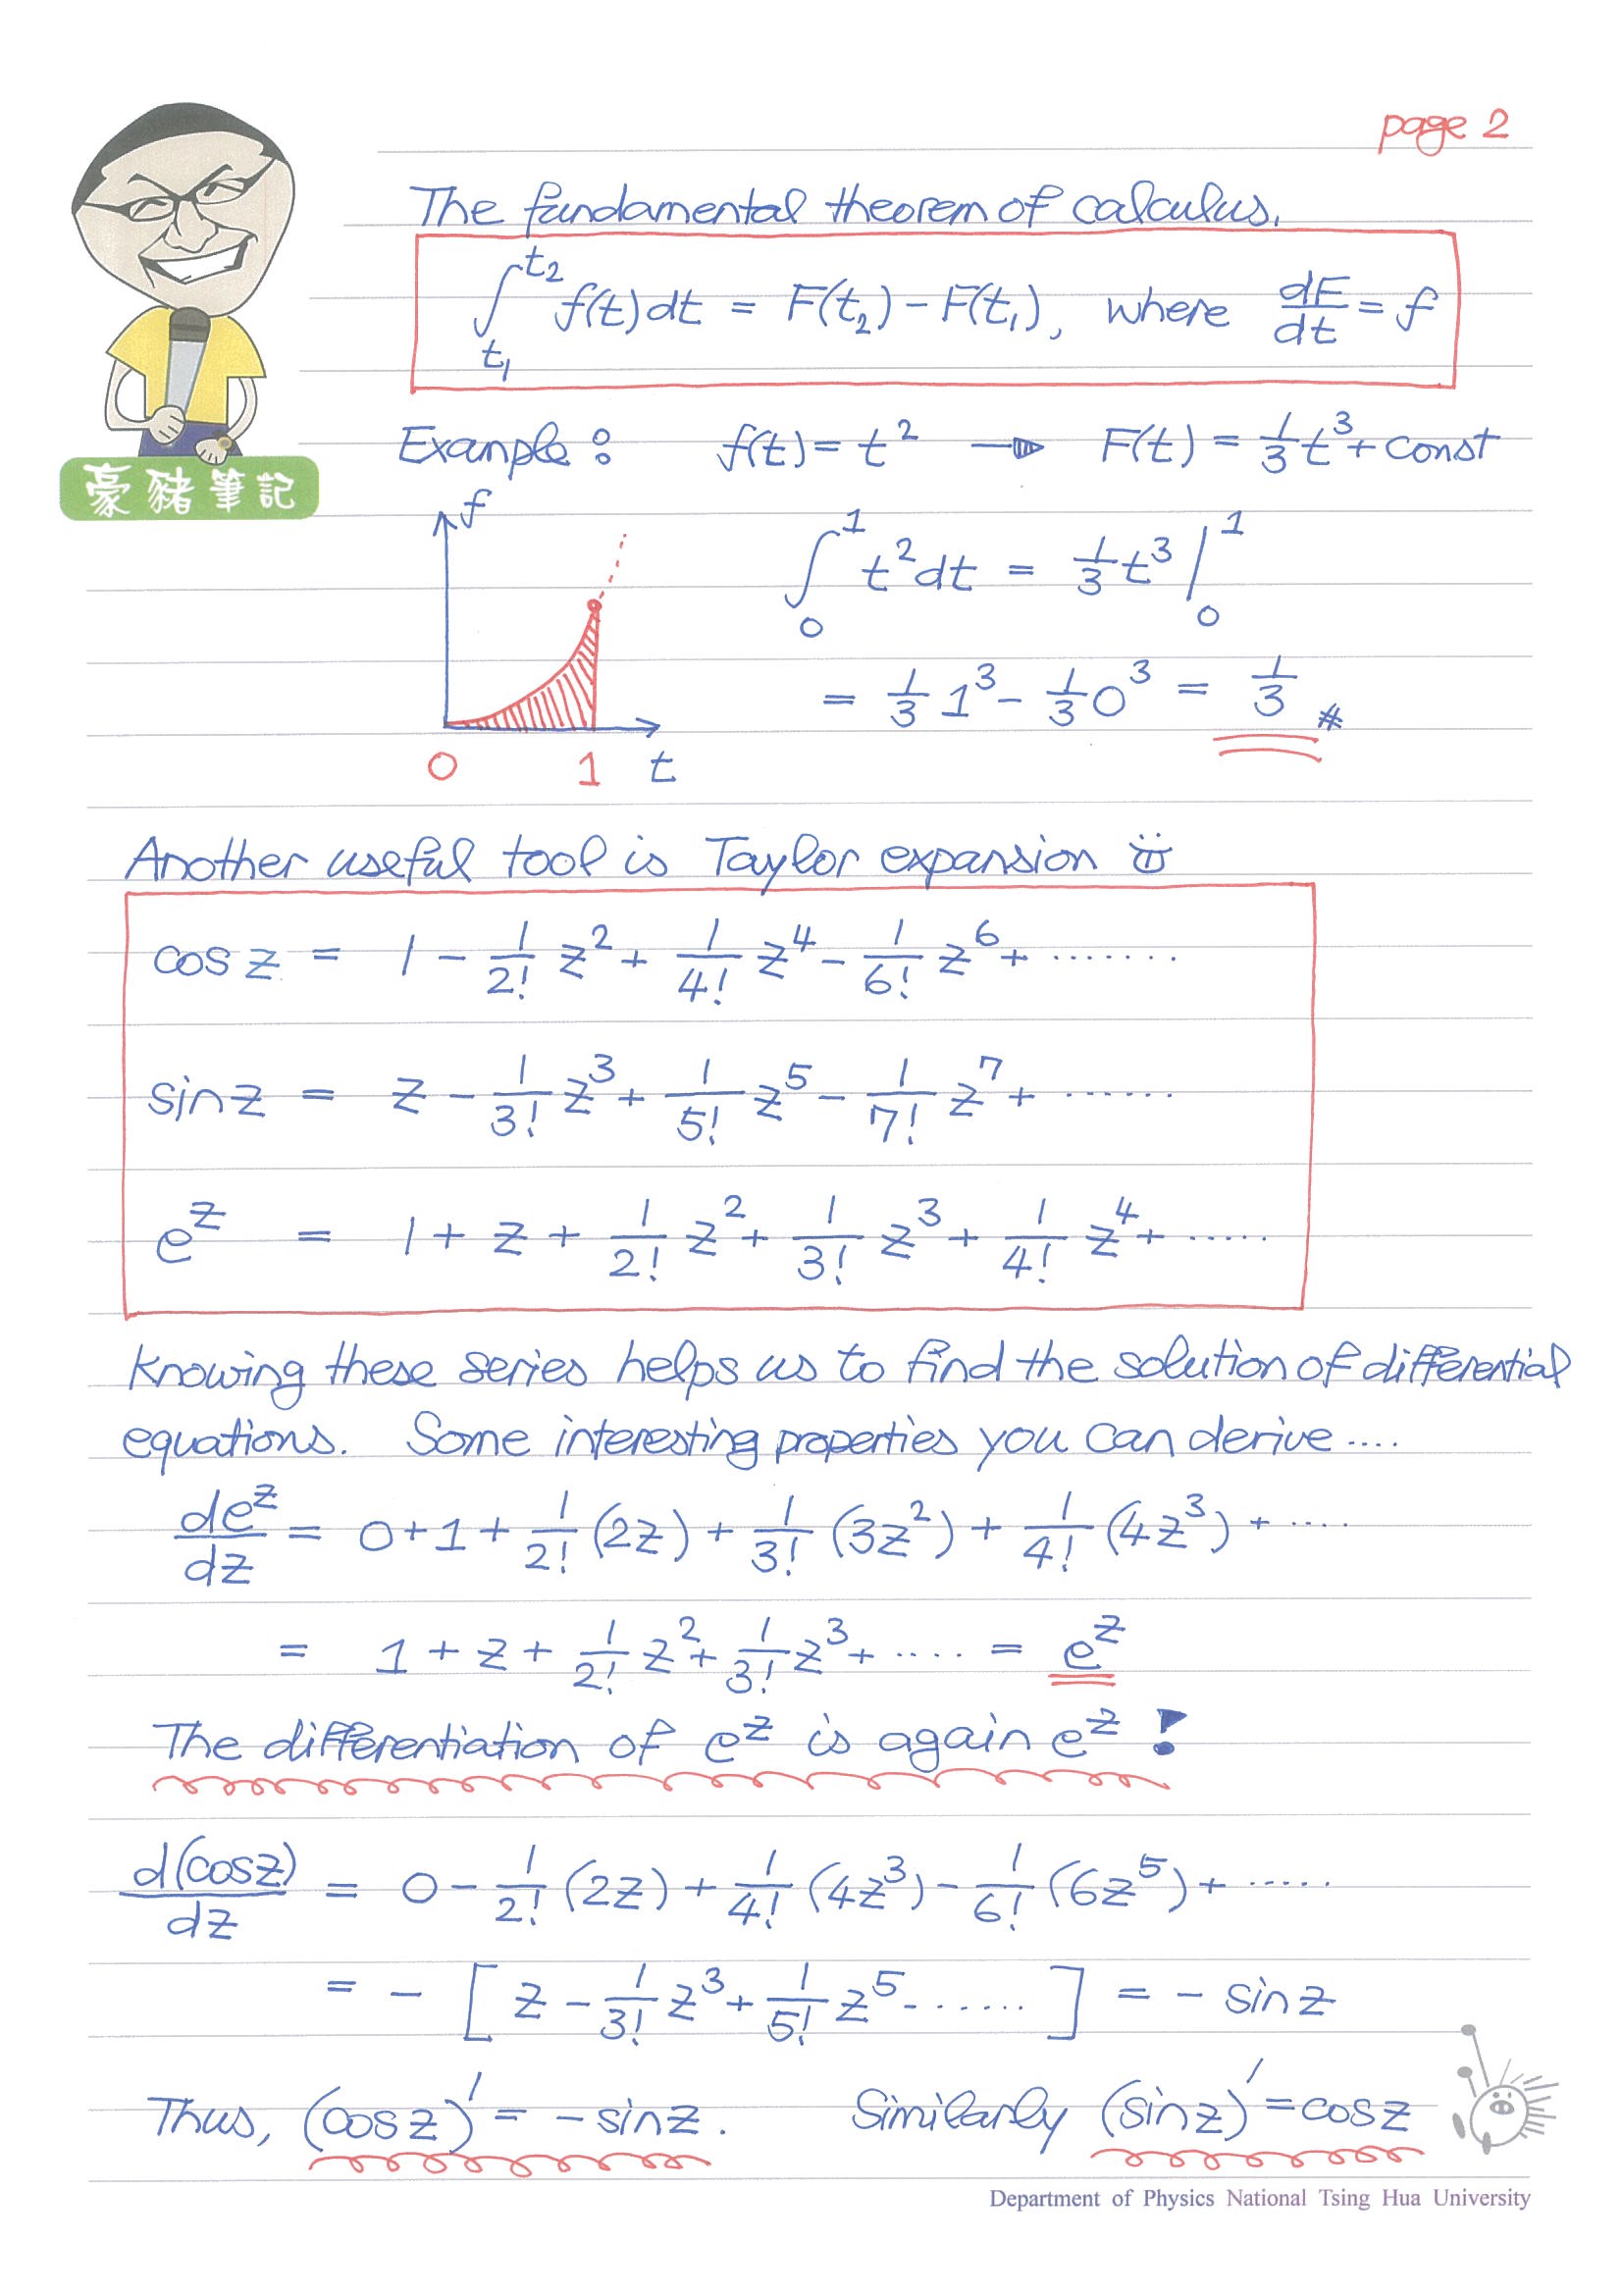 page 2
The fundamental theorem of calculus.
∫_{t₁}^{t₂} f(t)dt = F(t₂) - F(t₁), where dF/dt = f
豪豬筆記
Example: f(t) = t² → F(t) = 1/3 t³ + const
f
∫_0^1 t² dt = 1/3 t³ |_0^1
= 1/3 1³ - 1/3 0³ = 1/3 #
0 1 t
Another useful tool is Taylor expansion
cos z = 1 - 1/2! z² + 1/4! z⁴ - 1/6! z⁶ + .......
sin z = z - 1/3! z³ + 1/5! z⁵ - 1/7! z⁷ + ......
e^z = 1 + z + 1/2! z² + 1/3! z³ + 1/4! z⁴ + .....
Knowing these series helps us to find the solution of differential
equations. Some interesting properties you can derive ....
de^z/dz = 0 + 1 + 1/2! (2z) + 1/3! (3z²) + 1/4! (4z³) + ....
= 1 + z + 1/2! z² + 1/3! z³ + .... = e^z
The differentiation of e^z is again e^z !
d(cos z)/dz = 0 - 1/2! (2z) + 1/4! (4z³) - 1/6! (6z⁵) + .....
= - [ z - 1/3! z³ + 1/5! z⁵ - ...... ] = - sin z
Thus, (cos z)' = - sin z. Similarly (sin z)' = cos z
Department of Physics National Tsing Hua University